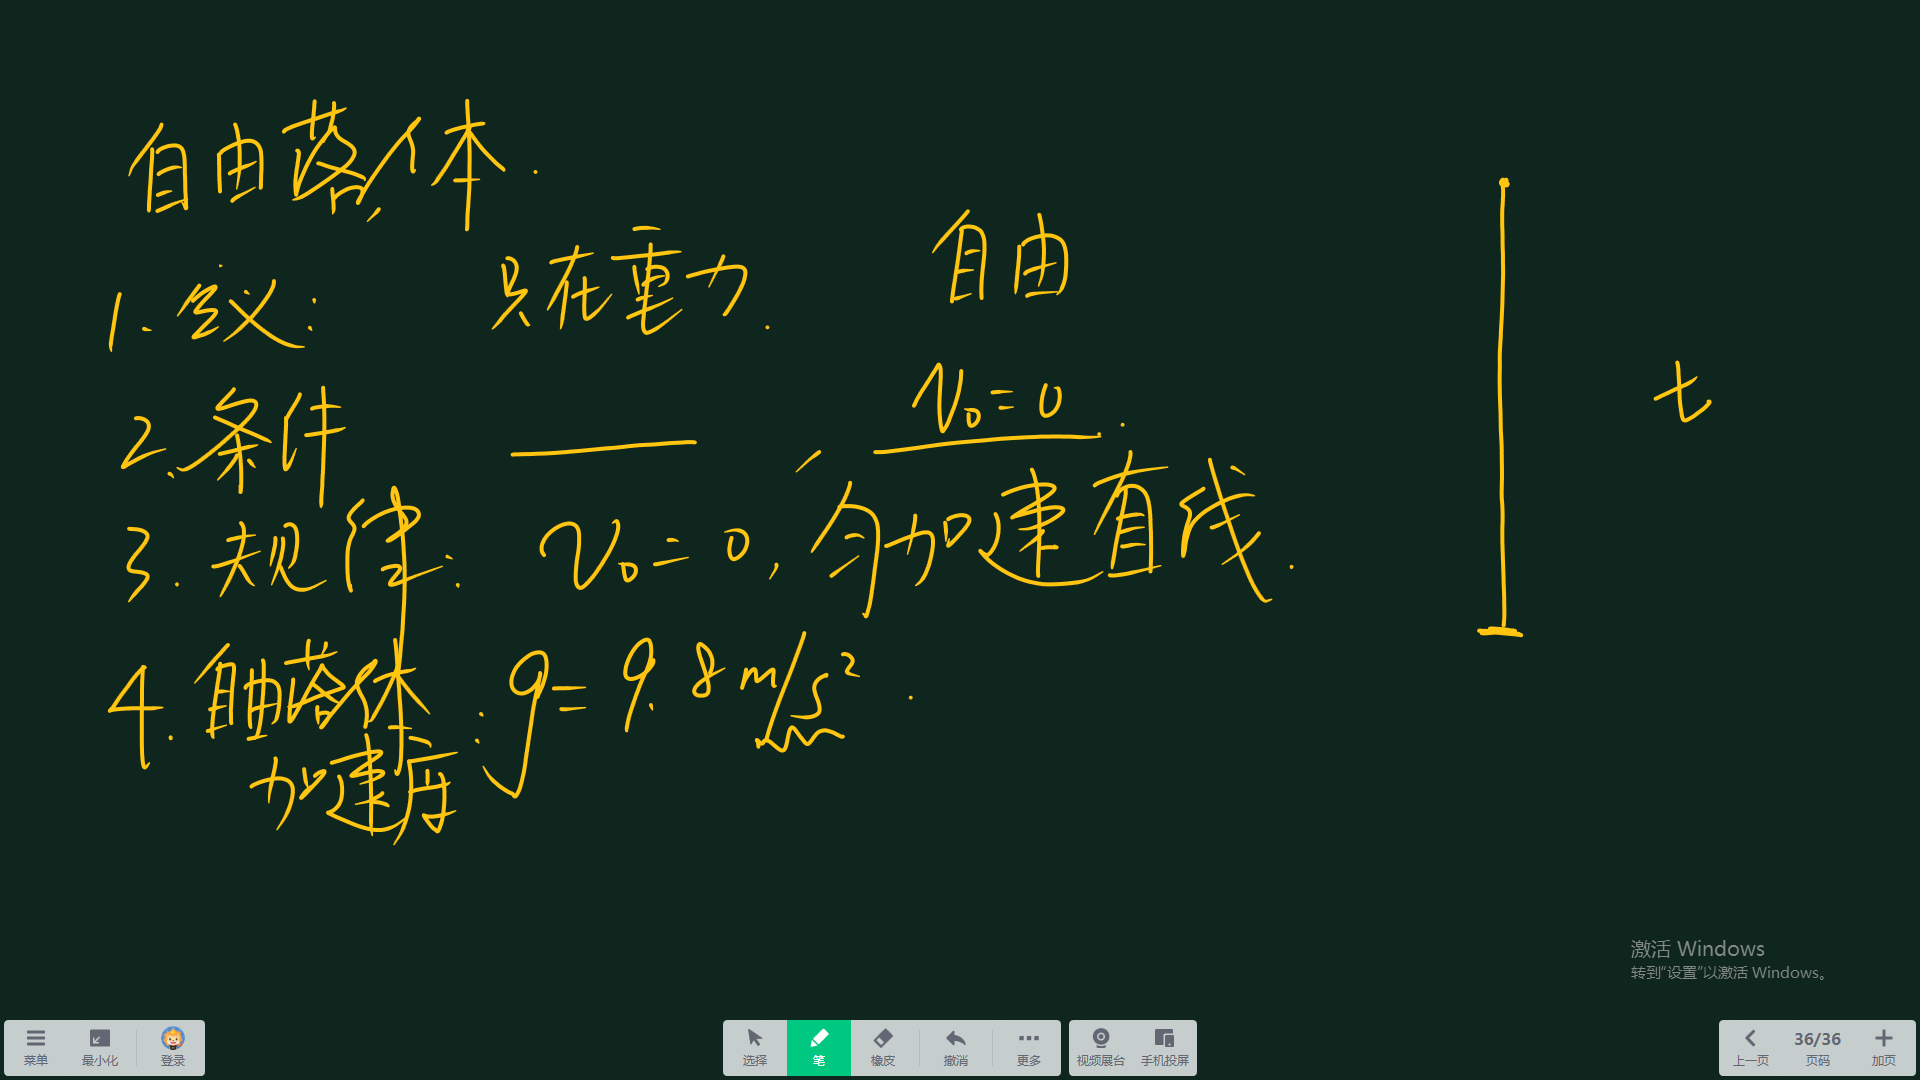 自由落体.
1. 含义: 只在重力. 自由
2. 条件 , v₀=0.
3. 规律: v₀=0, 匀加速直线.
4. 自由落体
加速度: g=9.8m/s².
t
激活 Windows
转到“设置”以激活 Windows。
菜单 最小化 登录 选择 笔 橡皮 撤消 更多 视频展台 手机投屏 上一页 36/36 页码 加页